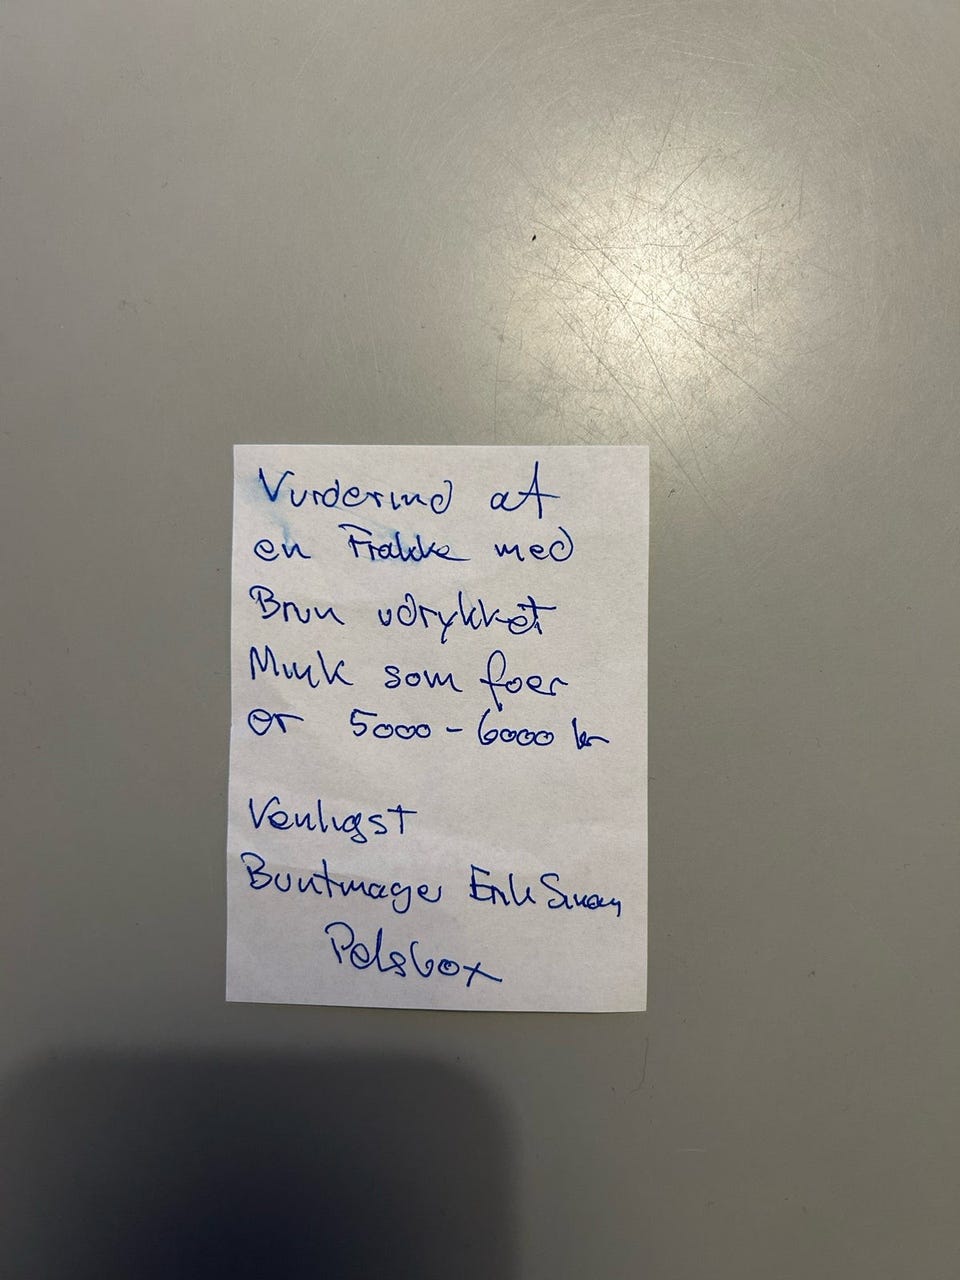 Vurdering af
en Frakke med
Brun udrykket
Mink som foer
er 5000 - 6000 kr
Venligst
Buntmager Erik
Pelsbox